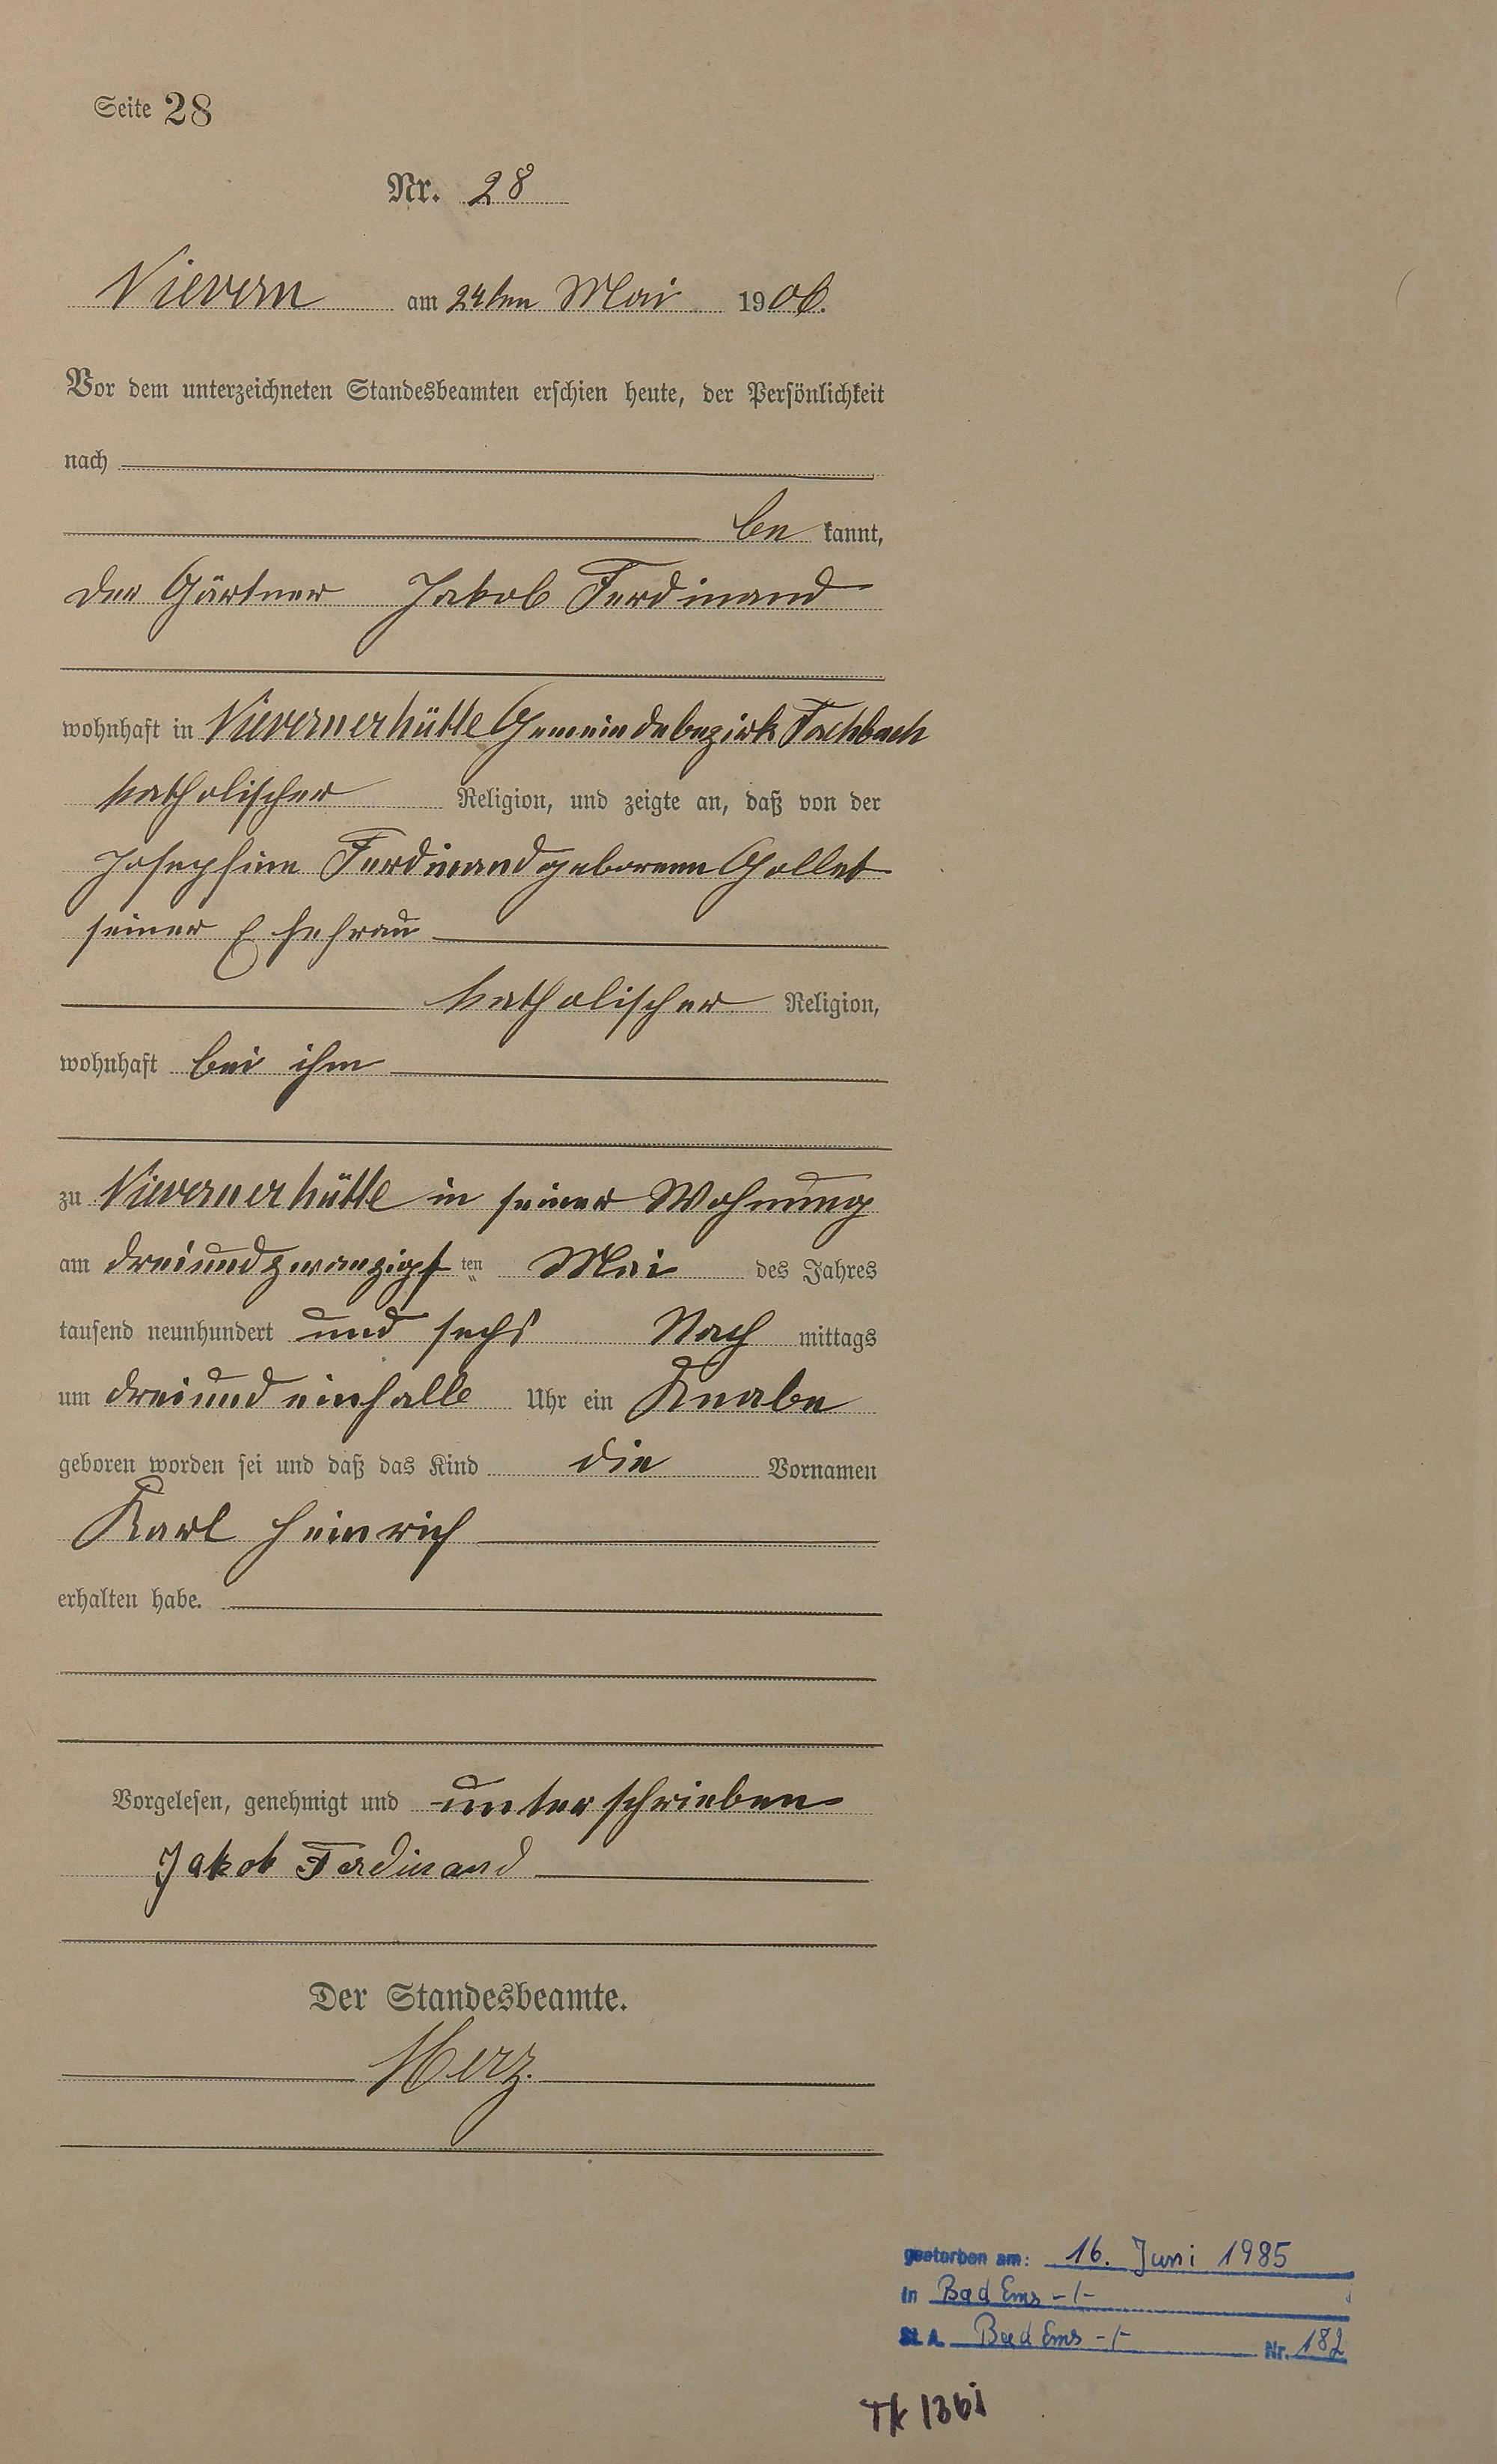 Seite 28
Nr. 28
Nievern am 24ten Mai 1906.
Vor dem unterzeichneten Standesbeamten erschien heute, der Persönlichkeit
nach
be kannt,
der Gärtner Jakob Ferdinand
wohnhaft in Nievernerhütte Gemeindebezirk Fachbach
katholischer Religion, und zeigte an, daß von der
Josephine Ferdinand geborenen Gollet
seiner Ehefrau
katholischer Religion,
wohnhaft bei ihm
zu Nievernerhütte in seiner Wohnung
am dreiundzwanzigsten Mai des Jahres
tausend neunhundert und sechs Nach mittags
um dreiundeinhalb Uhr ein Knabe
geboren worden sei und daß das Kind die Vornamen
Karl Heinrich
erhalten habe.
Vorgelesen, genehmigt und unterschrieben
Jakob Ferdinand
Der Standesbeamte.
Merz.
gestorben am: 16. Juni 1985
in Bad Ems -/-
St. A. Bad Ems -/- Nr. 182